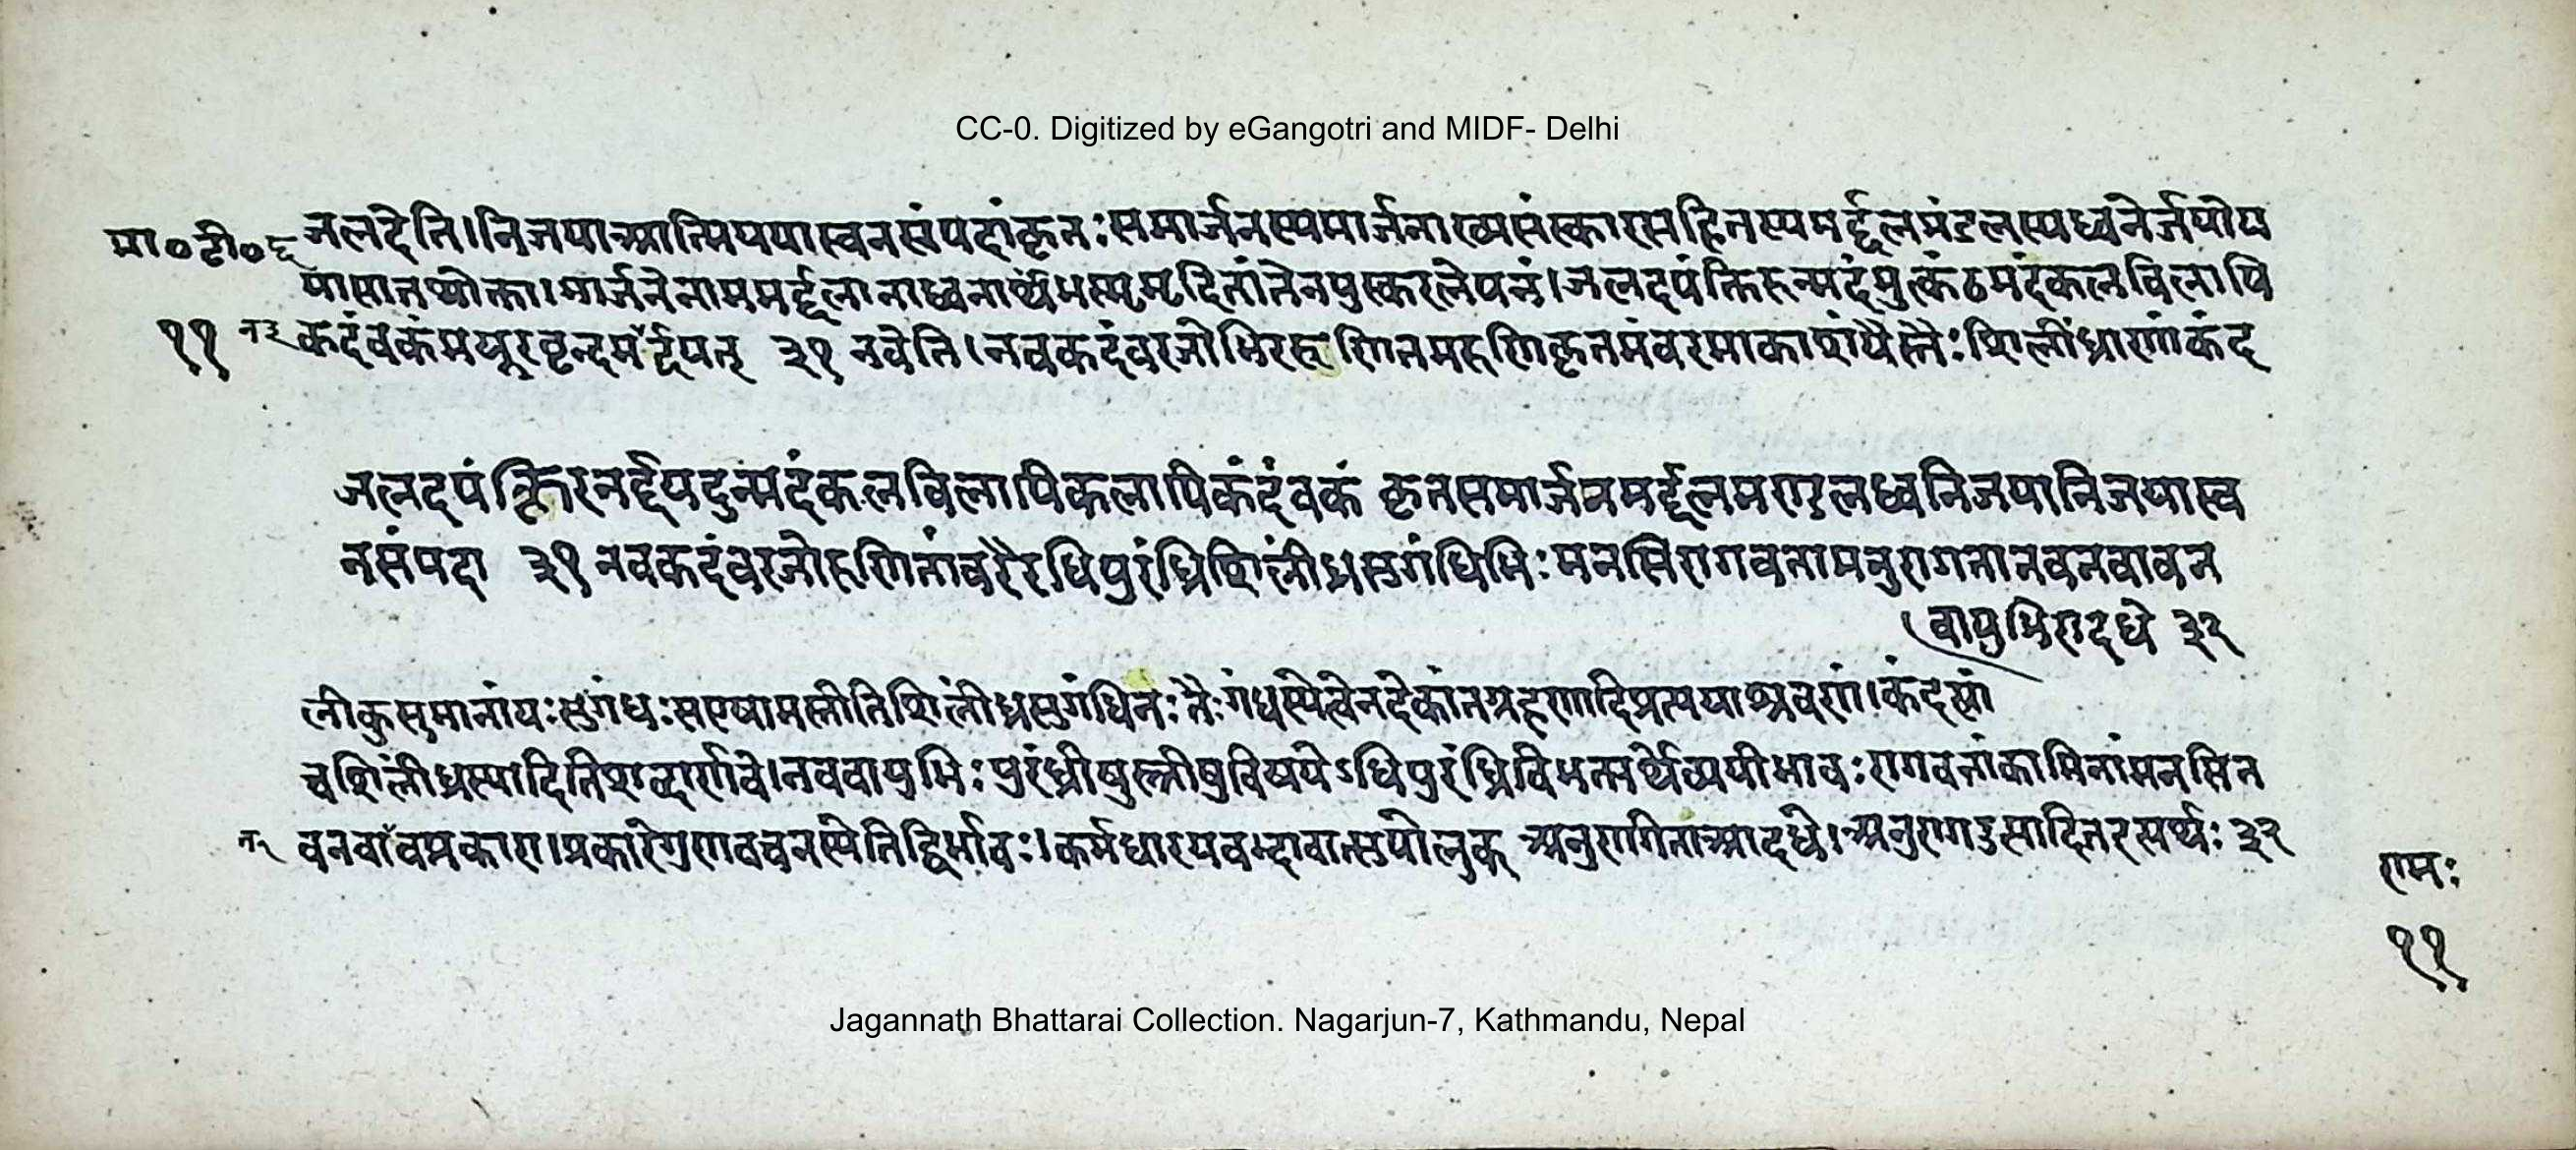 CC-0. Digitized by eGangotri and MIDF- Delhi
मा०टी०६ जलदेति।निजयाआत्मिययास्वनसंपदांकृतः समार्जनस्यमार्जनाख्यसंस्कारसहितस्यमर्द्दलमंडलस्यध्वनेर्जयोय
यासातथोक्ता।मार्जनेनाममर्द्दलानाध्वनार्थंभस्ममृदितांतेनपुस्करलेपनं।जलदपंक्तिरुन्मदंमुत्कंठमदंकलविलापि
११ कदंवकंमयूरवृन्दमर्द्दयत् ३१ नवेति।नवकदंवरजोभिररुणितमरुणिकृतमंवरमाकाशंयैस्तैः शिलींध्राणांकंद
जलदपंक्तिरनर्द्दयदुन्मदंकलविलापिकलापिकदंवकं कृतसमार्जनमर्द्दलमण्डलध्वनिजयानिजयास्व
नसंपदा ३१ नवकदंवरजोरुणितांवरैरधिपुरंध्रिशिलींध्रसुगंधिभिः मनसिरागवतामनुरागतानवनवावन
वायुभिरादधे ३२
लीकुसुमानांयः सुगंधः सएषामस्तीतिशिलींध्रसुगंधिनः तैः गंधस्येत्वेतदेकांतग्रहणादिप्रत्ययाश्रवणं।कंदल्यां
चशिलींध्रस्यादितिशब्दार्णवे।नववायुभिः पुरंध्रीषुस्त्रीषुविषयेऽधिपुरंध्रिविभक्त्यर्थेव्ययीभावः रागवतांकामिनांमनसिन
वनवांवप्रकारा।प्रकारेगुणवचनस्येतिद्विर्भावः।कर्मधारयवद्भावात्सुपोलुक् अनुरागितांआदधे। ३२
रामः
११
Jagannath Bhattarai Collection. Nagarjun-7, Kathmandu, Nepal